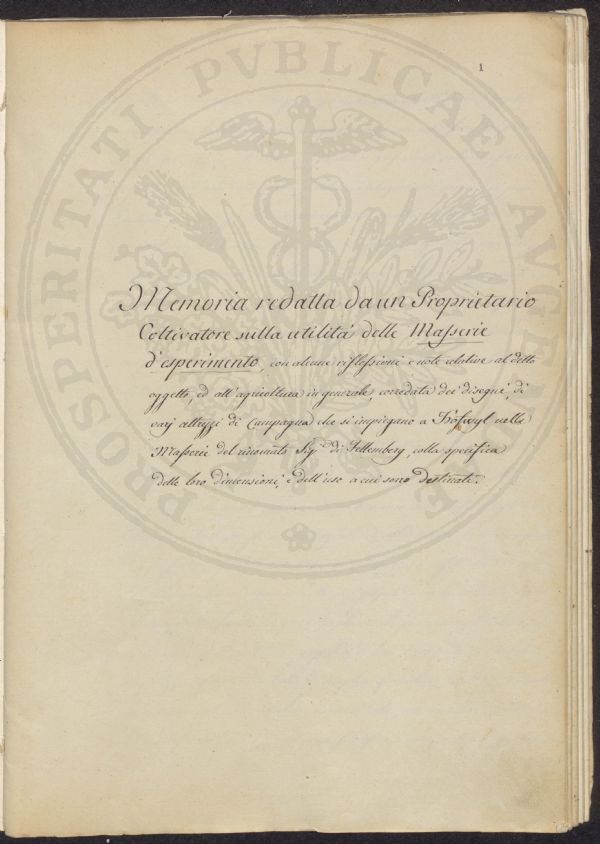 1
Memoria redatta da un Proprietario
Coltivatore sulla utilitá delle Masserie
d'esperimento, con alcune riflessioni e note relative al detto
oggetto, ed all'agricoltura in generale, corredata dei disegni, di
varj attrezzi di Campagna che si impiegano a Hofwyl nelle
Masserie del rinomato Sig.r di Fellemberg, colla specifica
delle loro dimensioni, e dell'uso a cui sono destinati.
PROSPERITATI PVBLICAE AVGENDAE